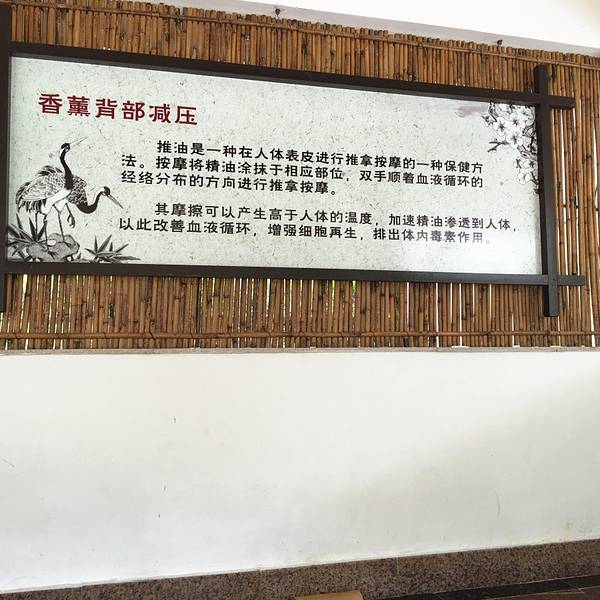 香薰背部减压
推油是一种在人体表皮进行推拿按摩的一种保健方
法。按摩将精油涂抹于相应部位，双手顺着血液循环的
经络分布的方向进行推拿按摩。
其摩擦可以产生高于人体的温度，加速精油渗透到人体，
以此改善血液循环，增强细胞再生，排出体内毒素作用。